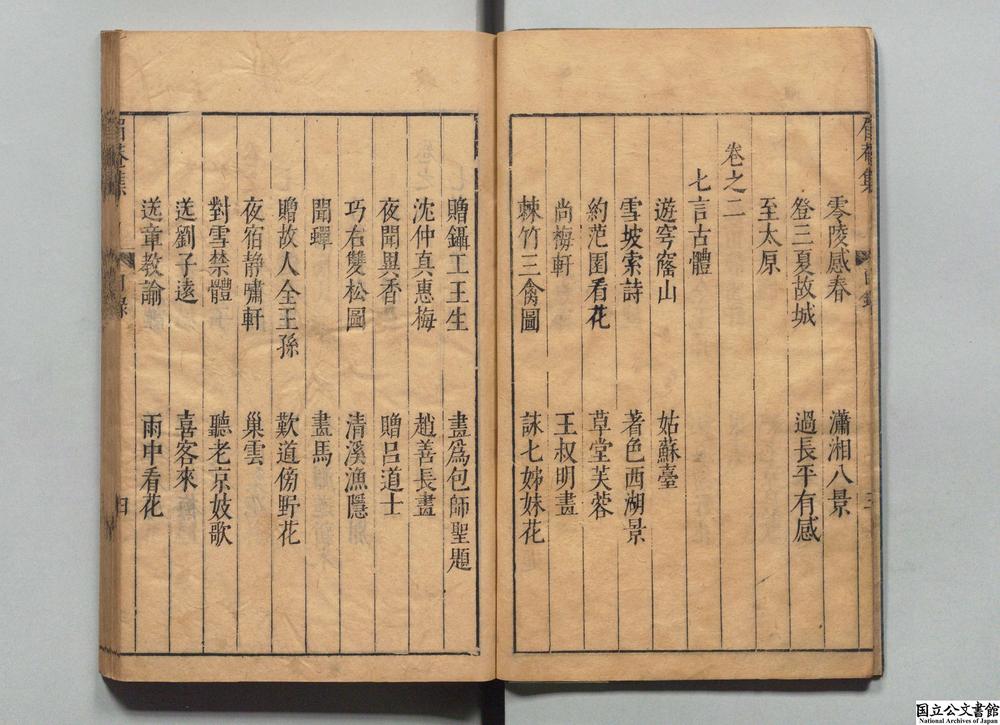 零陵感春　瀟湘八景
登三夏故城　過長平有感
至太原
卷之二
七言古體
遊穹窿山　姑蘇臺
雪坡索詩　著色西湖景
約范園看花　草堂芙蓉
尚梅軒　王叔明畫
棘竹三禽圖　詠七姊妹花
贈鑷工王生　畫爲包師聖題
沈仲真惠梅　趙善長畫
夜聞異香　贈呂道士
巧石雙松圖　清溪漁隱
聞蟬　畫馬
贈故人全王孫　歎道傍野花
夜宿静嘯軒　巢雲
對雪禁體　聽老京妓歌
送劉子遠　喜客來
送章教諭　雨中看花
目錄
国立公文書館
National Archives of Japan